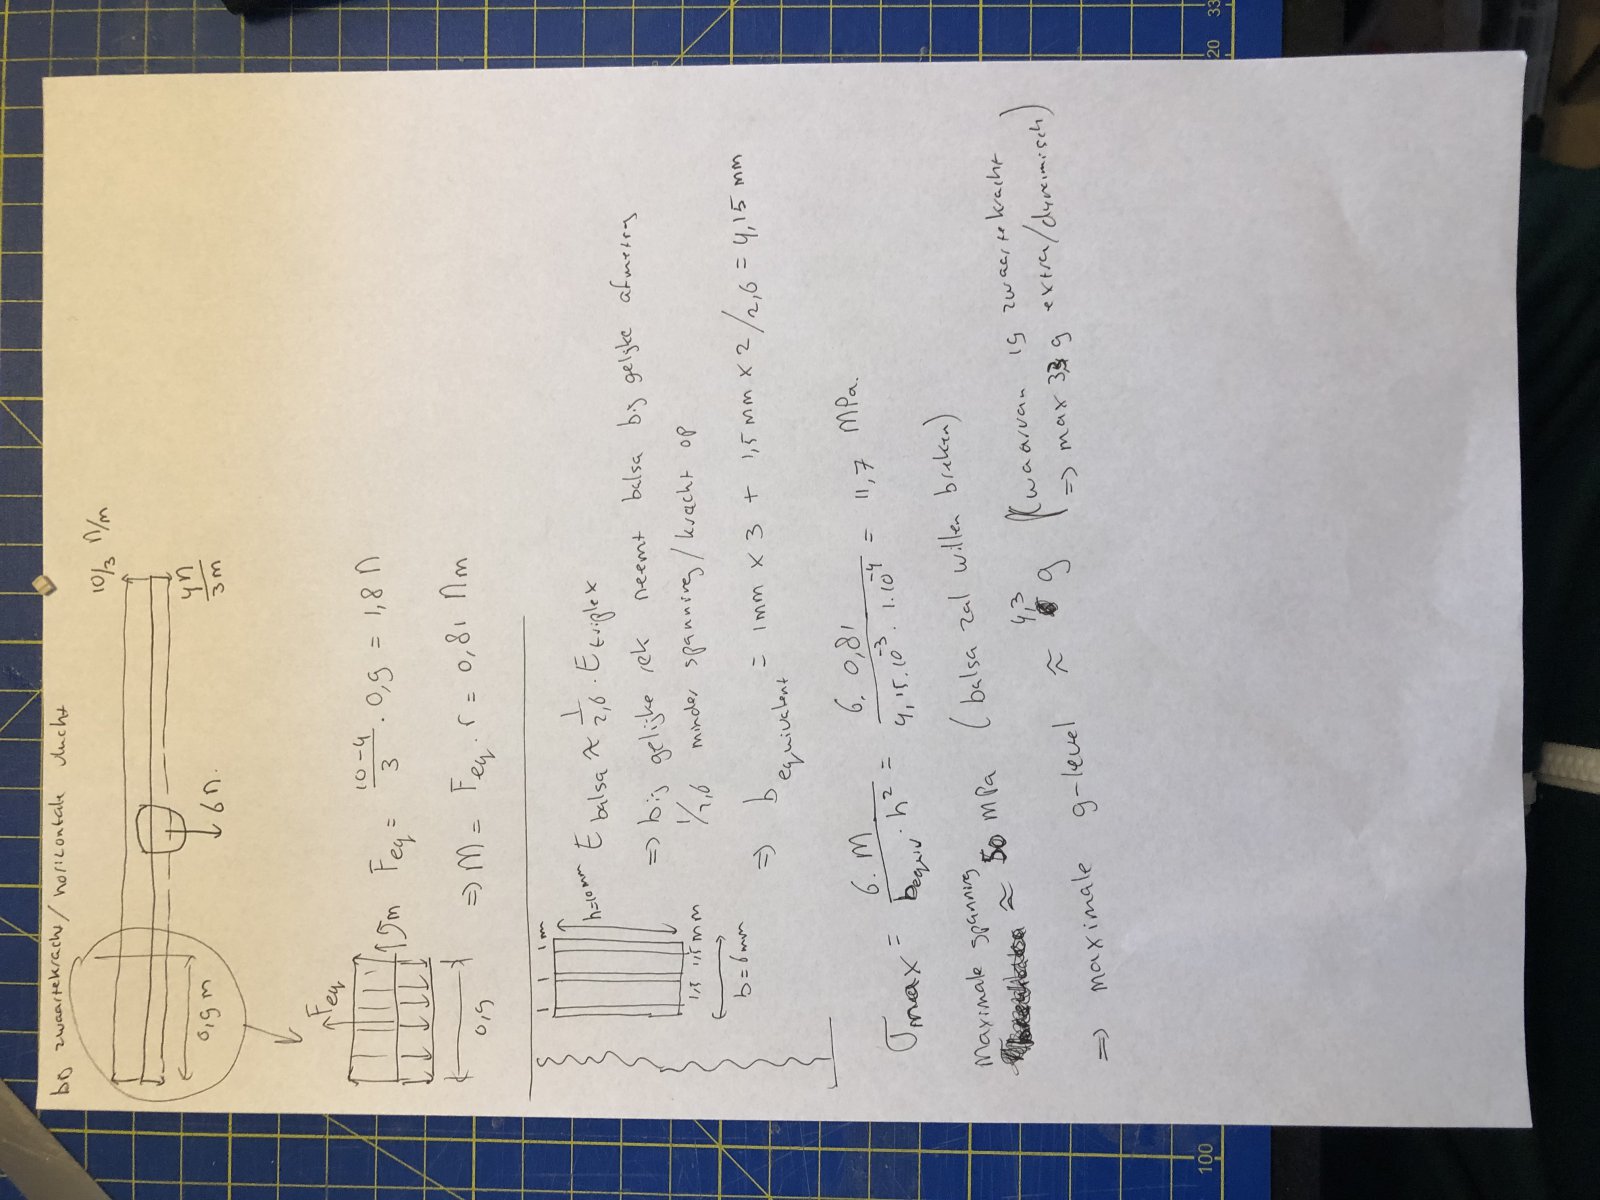 bij zwaartekracht/horizontale vlucht
10/3 N/m
4N
3m
0,9 m
6N.
Feq
↑ 5m
0,9
Feq = 10-4/3 · 0,9 = 1,8 N
=> M = Feq · r = 0,81 Nm
1 mm
h=10mm
1,5 1,5 mm
b=6mm
E balsa ≈ 1/2,6 · E triplex
=> bij gelijke rek neemt balsa bij gelijke afmeting
1/2,6 minder spanning/kracht op
=> b equivalent = 1mm x 3 + 1,5 mm x 2/2,6 = 4,15 mm
σmax = 6 · M / bequiv · h² = 6 · 0,81 / 4,15·10⁻³ · 1·10⁻⁴ = 11,7 MPa.
maximale spanning
≈ 50 MPa (balsa zal willen breken)
=> maximale g-level ≈ 4,3 g (waarvan 1g zwaartekracht
=> max 3,3 g extra/dynamisch)
20
33
100